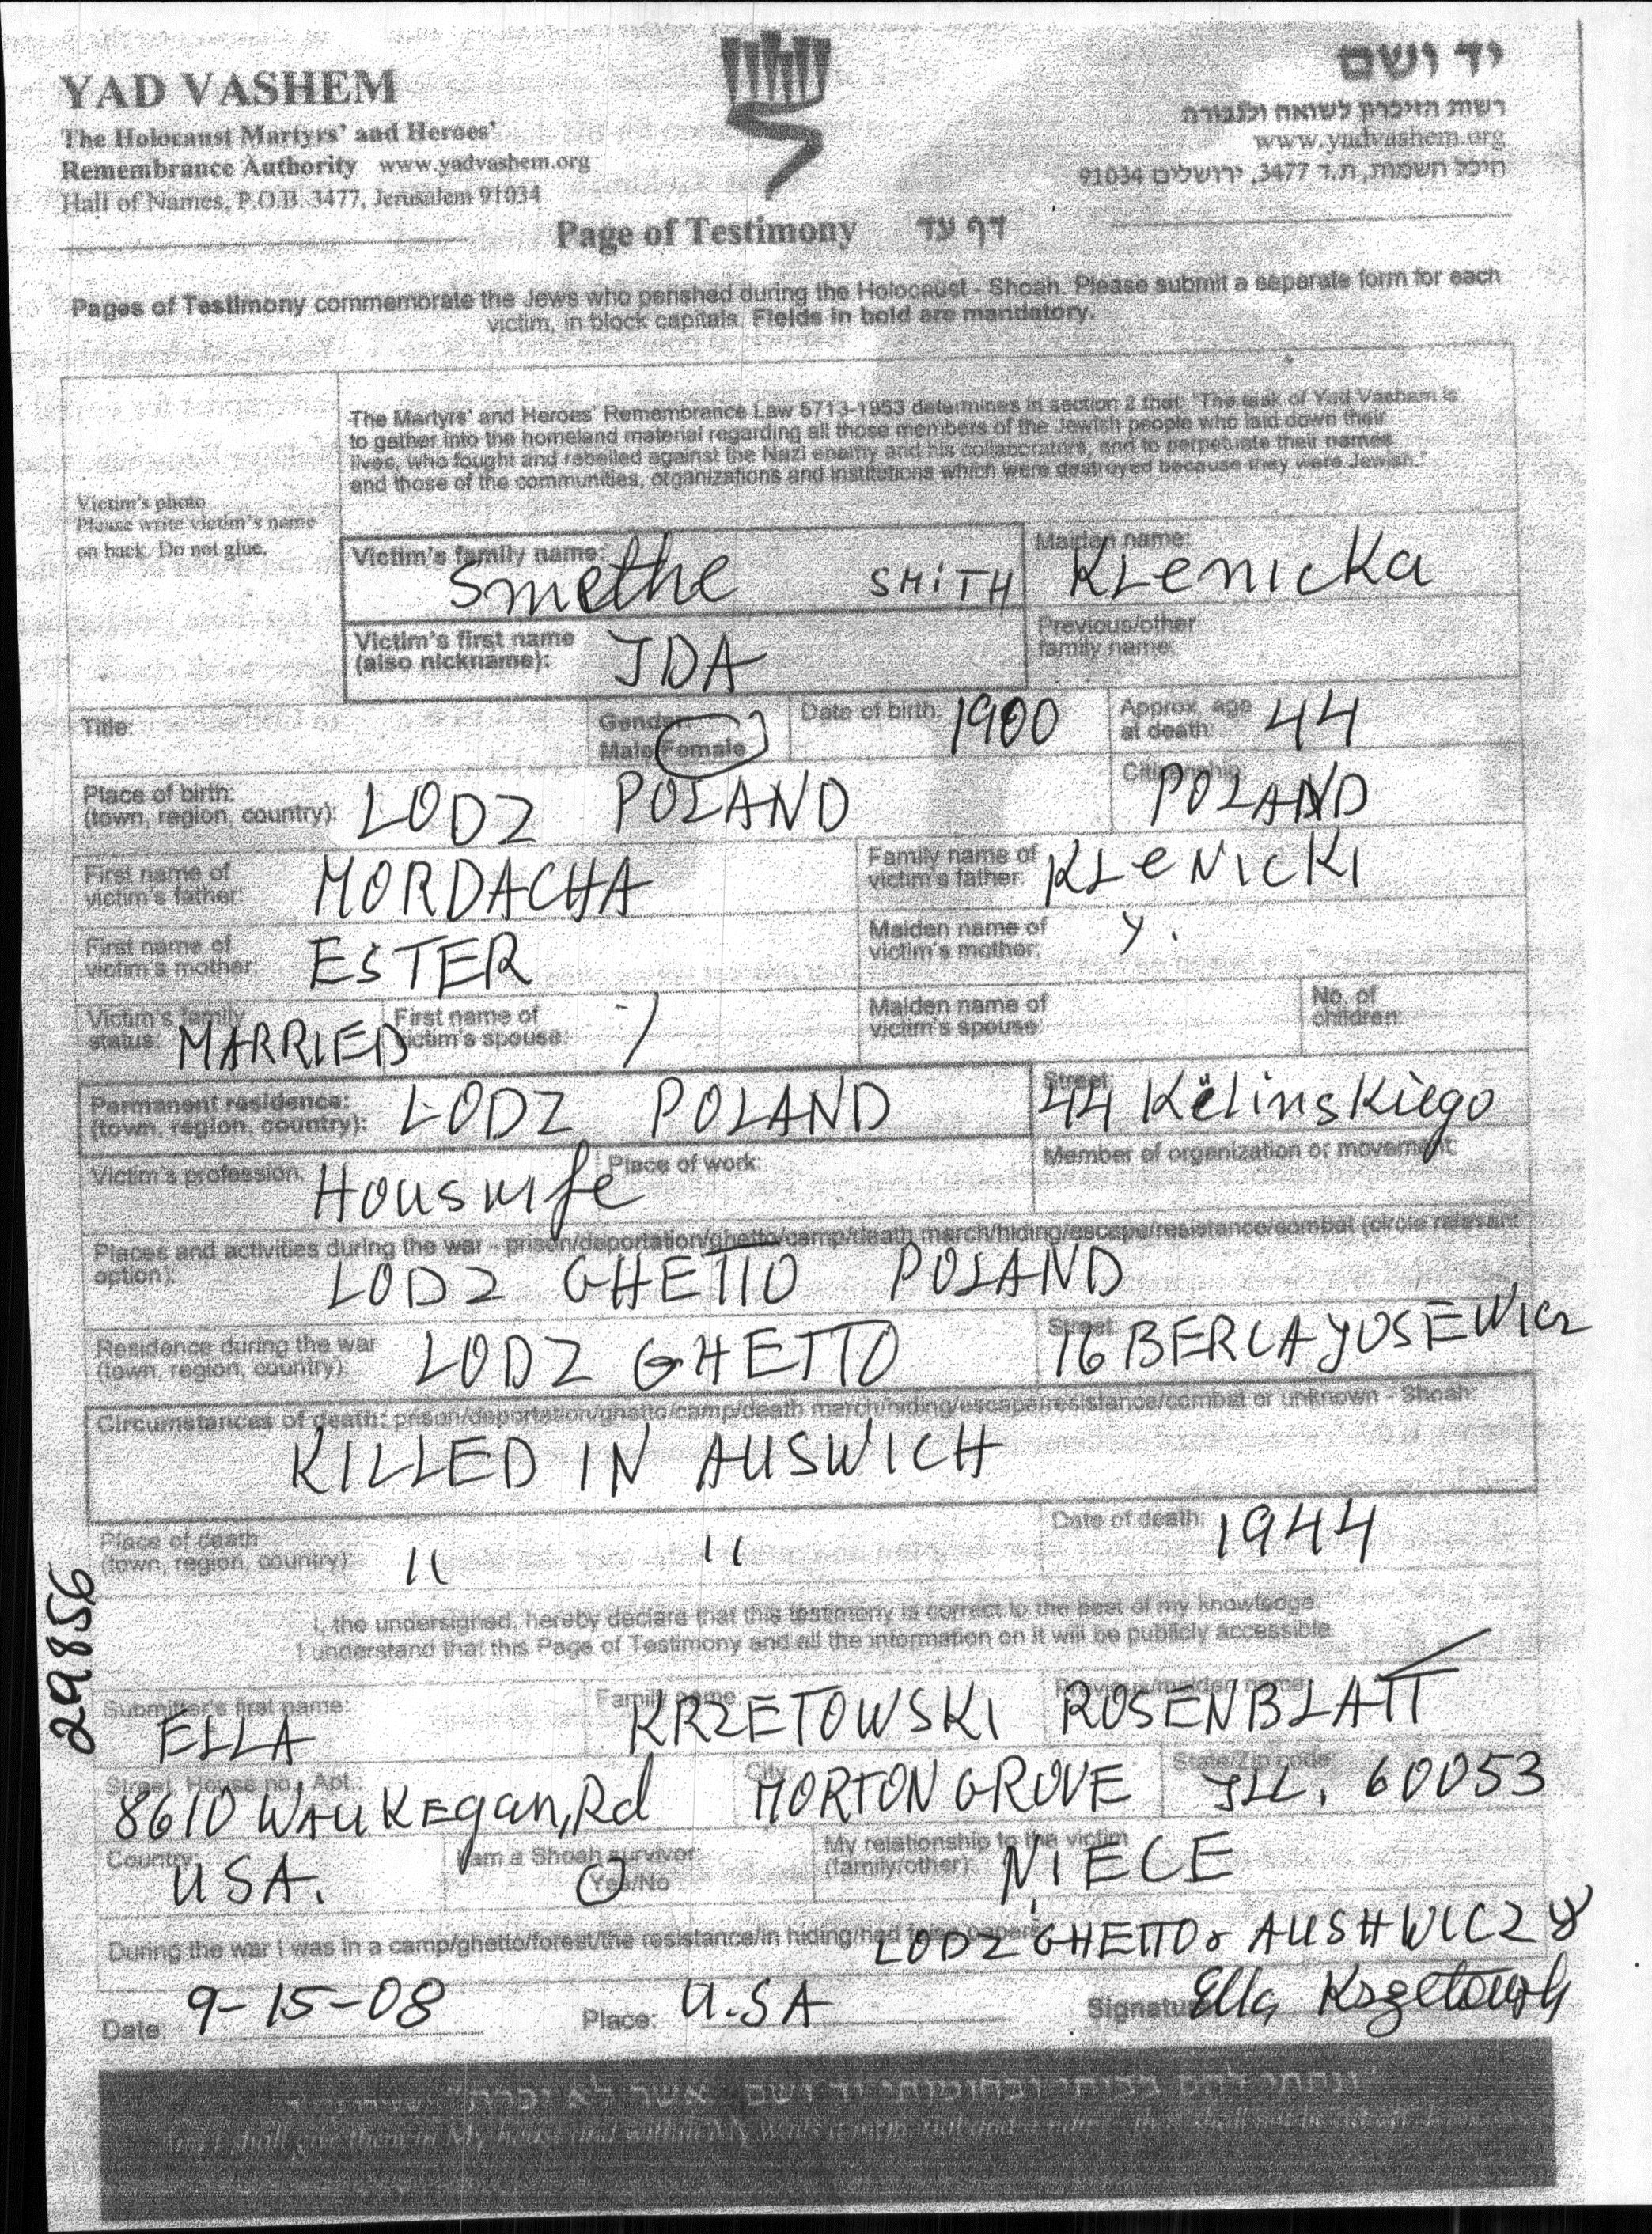 YAD VASHEM
The Holocaust Martyrs' and Heroes'
Remembrance Authority www.yadvashem.org
Hall of Names, P.O.B. 3477, Jerusalem 91034
יד ושם
רשות הזיכרון לשואה ולגבורה
www.yadvashem.org
היכל השמות, ת.ד 3477, ירושלים 91034
Page of Testimony דף עד
Pages of Testimony commemorate the Jews who perished during the Holocaust - Shoah. Please submit a separate form for each
victim, in block capitals. Fields in bold are mandatory.
The Martyrs' and Heroes' Remembrance Law 5713-1953 determines in section 2 that: "The task of Yad Vashem is
to gather into the homeland material regarding all those members of the Jewish people who laid down their
lives, who fought and rebelled against the Nazi enemy and his collaborators, and to perpetuate their names
and those of the communities, organizations and institutions which were destroyed because they were Jewish."
Victim's photo
Please write victim's name
on back. Do not glue.
Victim's family name: Smethe SMITH Maiden name: KLenicka
Victim's first name
(also nickname): IDA
Previous/other
family name:
Title: Gender: Male/Female Date of birth: 1900 Approx. age
at death: 44
Place of birth:
(town, region, country): LODZ POLAND Citizenship: POLAND
First name of
victim's father: MORDACHA Family name of
victim's father: KLENICKI
First name of
victim's mother: ESTER Maiden name of
victim's mother: y.
Victim's family
status: MARRIED First name of
victim's spouse: Maiden name of
victim's spouse: No. of
children:
Permanent residence:
(town, region, country): LODZ POLAND Street: 44 Kilinskiego
Victim's profession: Houswife Place of work: Member of organization or movement:
Places and activities during the war - prison/deportation/ghetto/camp/death march/hiding/escape/resistance/combat (circle relevant
option): LODZ GHETTO POLAND
Residence during the war
(town, region, country): LODZ GHETTO Street: 16 BERLAYOSEWICZ
Circumstances of death: prison/deportation/ghetto/camp/death march/hiding/escape/resistance/combat or unknown - Shoah:
KILLED IN AUSWICH
Place of death
(town, region, country): " " Date of death: 1944
I, the undersigned, hereby declare that this testimony is correct to the best of my knowledge.
I understand that this Page of Testimony and all the information on it will be publicly accessible.
29856
Submitter's first name: ELLA Family name: KRZETOWSKI Previous/maiden name: ROSENBLATT
Street, House no., Apt.: 8610 WAUKEgan, Rd City: MORTON GROVE State/Zip code: ILL. 60053
Country: USA. I am a Shoah survivor: Yes/No My relationship to the victim
(family/other): NIECE
During the war I was in a camp/ghetto/forest/the resistance/in hiding/had false papers: LODZ GHETTO & AUSHWICZ
Date: 9-15-08 Place: U.SA Signature: Ella Krzetowski
"ונתתי להם בביתי ובחומותי יד ושם ... אשר לא יכרת"
And I shall give them in My house and within My walls a memorial and a name ... that shall not be cut off.